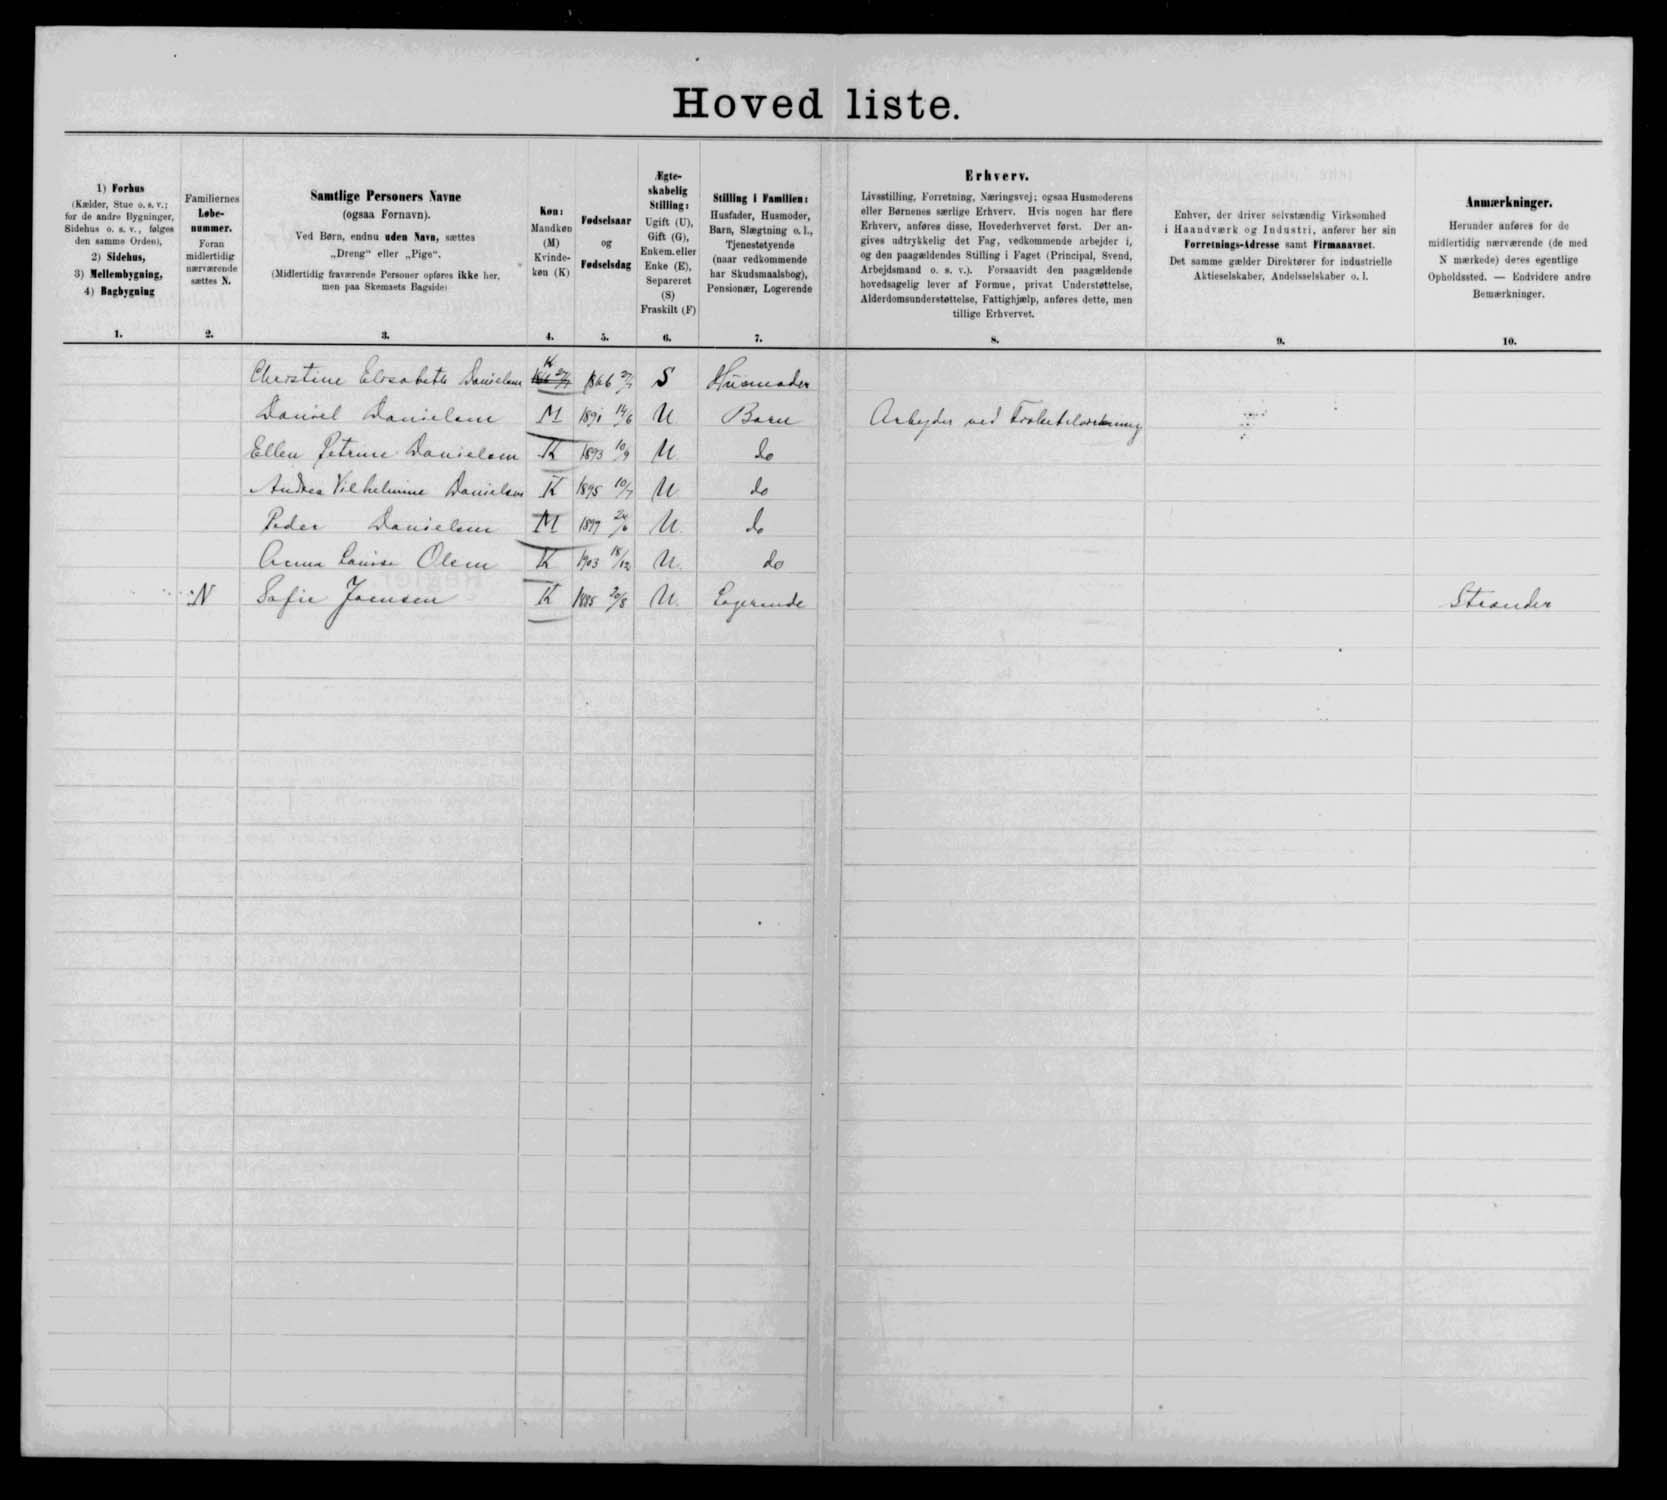 Hovedliste.
1) Forhus
(Kælder, Stue o. s. v.;
for de andre Bygninger,
Sidehus o. s. v., følges
den samme Orden),
2) Sidehus,
3) Mellembygning,
4) Bagbygning
1.
Familiernes
Løbe-
nummer.
Foran
midlertidig
nærværende
sættes N.
2.
Samtlige Personers Navne
(ogsaa Fornavn).
Ved Børn, endnu uden Navn, sættes
„Dreng“ eller „Pige“.
(Midlertidig fraværende Personer opføres ikke her,
men paa Skemaets Bagside)
3.
Køn:
Mandkøn
(M)
Kvinde-
køn (K)
4.
Fødselsaar
og
Fødselsdag
5.
Ægte-
skabelig
Stilling:
Ugift (U),
Gift (G),
Enkem. eller
Enke (E),
Separeret
(S)
Fraskilt (F)
6.
Stilling i Familien:
Husfader, Husmoder,
Barn, Slægtning o. l.,
Tjenestetyende
(naar vedkommende
har Skudsmaalsbog),
Pensionær, Logerende
7.
Erhverv.
Livsstilling, Forretning, Næringsvej; ogsaa Husmoderens
eller Børnenes særlige Erhverv. Hvis nogen har flere
Erhverv, anføres disse, Hovederhvervet først. Der an-
gives udtrykkelig det Fag, vedkommende arbejder i,
og den paagældendes Stilling i Faget (Principal, Svend,
Arbejdsmand o. s. v.). Forsaavidt den paagældende
hovedsagelig lever af Formue, privat Understøttelse,
Alderdomsunderstøttelse, Fattighjælp, anføres dette, men
tillige Erhvervet.
8.
Enhver, der driver selvstændig Virksomhed
i Haandværk og Industri, anfører her sin
Forretnings-Adresse samt Firmanavnet.
Det samme gælder Direktører for industrielle
Aktieselskaber, Andelsselskaber o. l.
9.
Anmærkninger.
Herunder anføres for de
midlertidig nærværende (de med
N mærkede) deres egentlige
Opholdssted. — Endvidere andre
Bemærkninger.
10.
Christine Elisabeth Danielsen K 1866 27/7 S Husmoder
Daniel Danielsen M 1891 14/6 U Barn Arbejder ved
Ellen Petrine Danielsen K 1893 10/9 U do
Andrea Vilhelmine Danielsen K 1895 10/7 U do
Peder Danielsen M 1897 24/6 U do
Anna Louise Olsen K 1903 18/12 U do
N Sofie Joensen K 1885 20/8 U Logerende Strænder